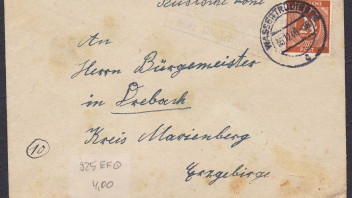 Russische Zone
An
Herrn Bürgermeister
in Drebach
Kreis Marienberg
Erzgebirge
10
925 EF
4,00